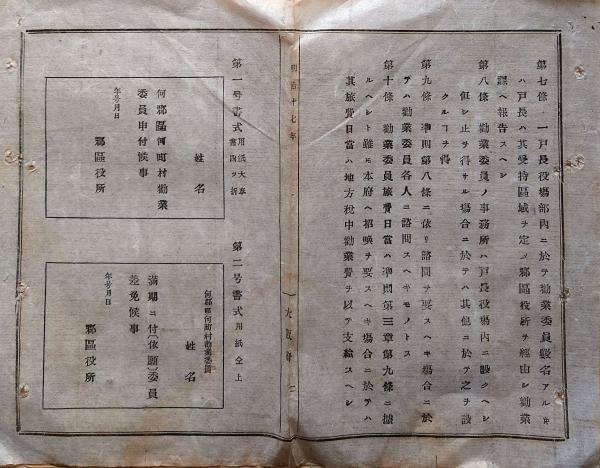 第七條 一戸長役場部內ニ於テ勸業委員數名アルトキ
ハ戸長ハ其受持區域ヲ定メ郡區役所ヲ經由シ勸業
課ヘ報告スヘシ
第八條 勸業委員ノ事務所ハ戸長役場內ニ設クヘシ
但シ止ヲ得サル場合ニ於テハ其他ニ於テ之ヲ設
クルコヲ得
第九條 準則第八條ニ依リ諮問ヲ要スヘキ場合ニ於
テハ勸業委員各人ニ諮問スヘキモノトス
第十條 勸業委員旅費日當ハ準則第三章第九條ニ據
ルヘシト雖モ本府ヘ招喚ヲ要スヘキ場合ニ於テハ
其旅費日當ハ地方稅中勸業費ヲ以テ支給スヘシ
明治十七年
大阪府
第一号書式 用紙大奉書四ツ折
姓名
何郡區何町村勸業
委員申付候事
年号月日
郡區役所
第二号書式 用紙仝上
何郡區何町村勸業委員
姓名
滿期ニ付(依願)委員
差免候事
年号月日
郡區役所